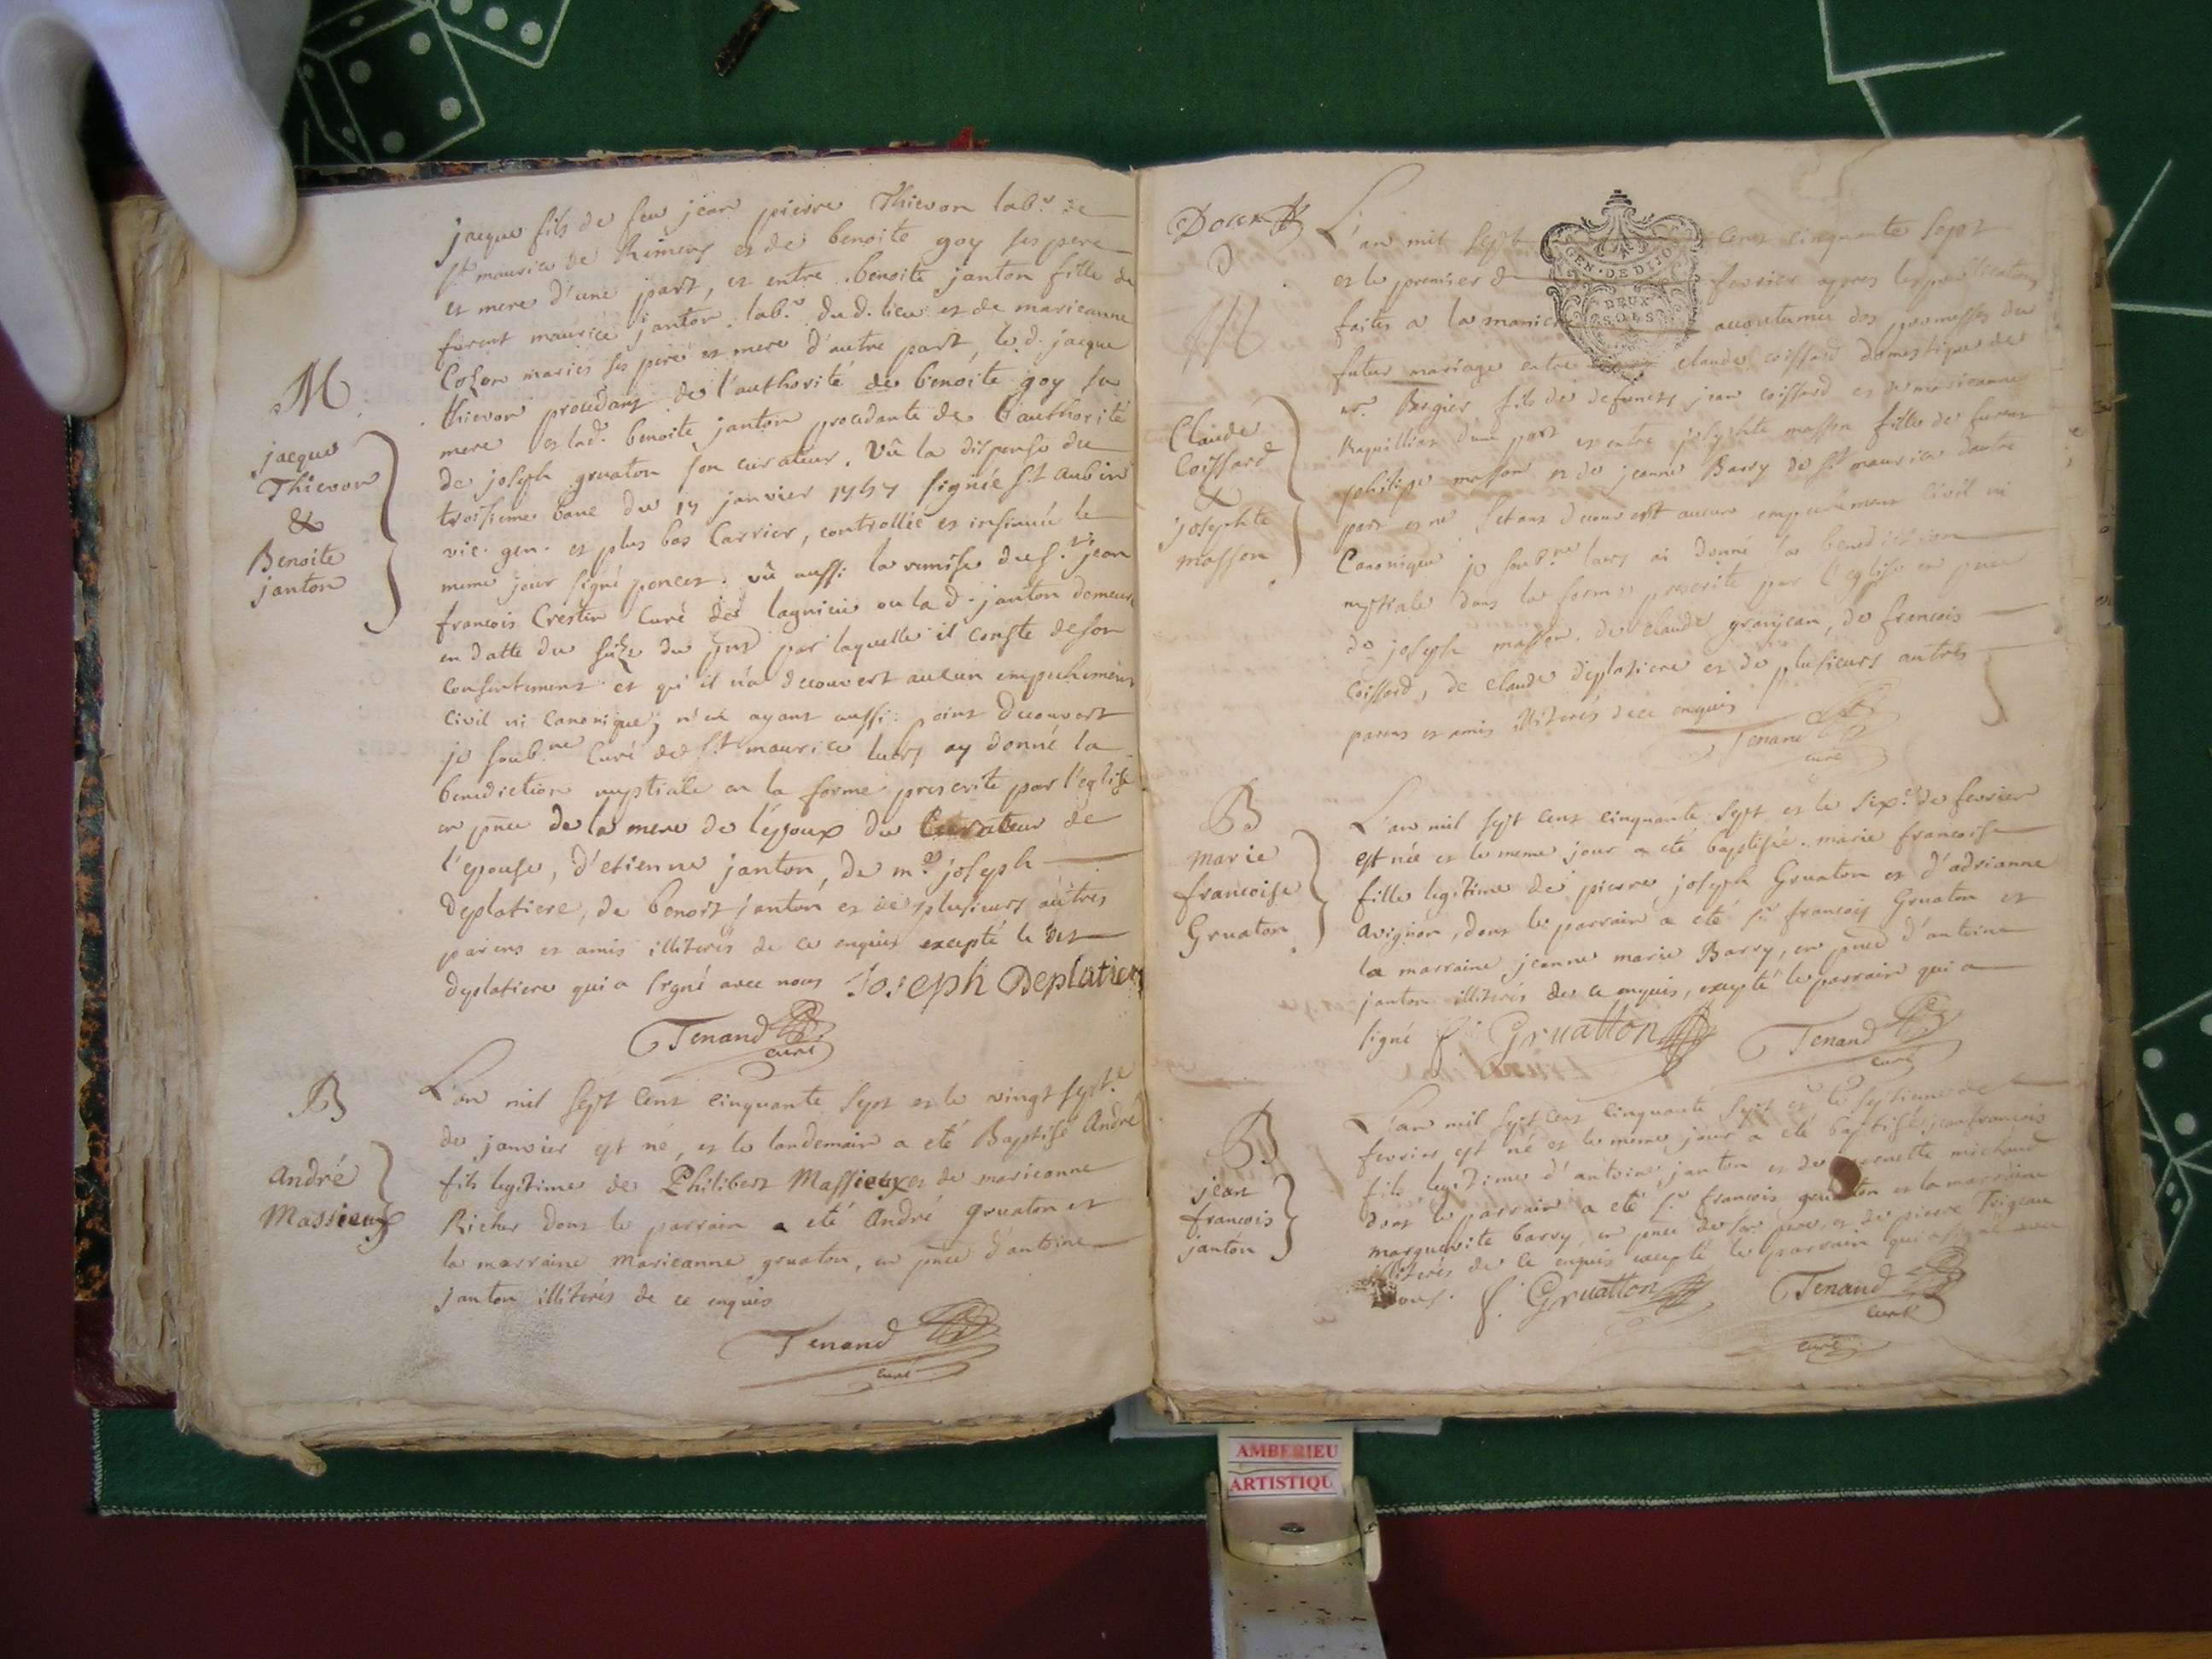 jacque fils de feu jean pierre Thievon lab.r de
st maurice de Rimens et de benoite goy ses pere
et mere d'une part, et entre benoite janton fille de
furent maurice janton lab.r du d. lieu et de marieanne
Coson mariés ses pere et mere d'autre part, le d. jacque
thievon procedant de l'authorité de benoite goy sa
mere et lad. benoite janton procedante de l'authorité
de joseph gruaton son curateur. Vû la dispense du
troisieme banc du 17 janvier 1757 signée st aubin
vic. gen. et plus bas Carrier, controllée et insinuée le
meme jour signé poncet. vû aussi la remise du s.r jean
francois Crestin Curé de lagnieu ou la d. janton demeure
en datte du du pnt par laquelle il conste de son
consentement et qu'il n'a decouvert aucun empechement
civil ni canonique, n'en ayant aussi point decouvert
je soub.né Curé de St maurice leurs ay donné la
benediction nuptiale en la forme prescrite par l'eglise
en pnce de la mere de l'époux du Curateur de
l'epouse, d'etienne janton, de m.e joseph
deplatiere, de benoit janton et de plusieurs autres
parens et amis illiterés de ce enquis excepté le dit
deplatiere qui a signé avec nous Joseph Deplatiere
Tenand
curé
M
jacque
Thievon
&
Benoite
janton
B
André
Massieux
L'an mil sept cent cinquante sept et le vingt sept.e
de janvier est né, et le landemain a eté Baptisé André
fils legitime de Philibert Massieux et de marieanne
Richer dont le parrain a eté André gruaton et
la marraine Marieanne gruaton, en pnce d'antoine
janton illiterés de ce enquis
Tenand
curé
L'an mil sept cent cinquante sept
et le premier de fevrier apres les publications
faites a la maniere accoutumée des promesses du
futur mariage entre claude coissard domestique de
mr. Bergier fils de defuncts jean coissard et de marieanne
Raquillier d'une part et entre josephte masson fille de furent
philipe masson et de jeanne Barry de st maurice d'autre
part et ne s'etant decouvert aucun empechement civil ni
Canonique je soub.né leurs ai donné la benediction
nuptiale dans la forme prescrite par l'eglise en pnce
de joseph masson, de claude granjean, de francois
coissard, de claude deplatiere et de plusieurs autres
parens et amis illiterés de ce enquis
Tenand
curé
GEN. DE DIJON
DEUX
SOLS
Claude
Coissard
&
josephte
masson
B
Marie
francoise
Gruaton
L'an mil sept cent cinquante sept et le six.e de fevrier
est née et le meme jour a eté baptisée marie francoise
fille legitime de pierre joseph Gruaton et d'adrianne
avignon, dont le parrain a eté s.r francois Gruaton et
la marraine jeanne marie Barry, en pnce d'antoine
janton illiterés de ce enquis, excepté le parrain qui a
signé f. Gruatton Tenand
curé
B
jean
francois
janton
L'an mil sept cent cinquante sept et le septieme de
fevrier est né et le meme jour a eté baptisé jean francois
fils legitime d'antoine janton et de michaud
dont le parrain a eté s.r francois gruaton et la marraine
marguerite barry, en pnce de son pere, et de pierre
illiterés de ce enquis excepté le parrain qui a signé avec
nous. f. Gruatton Tenand
curé
curé
AMBERIEU
ARTISTIQU